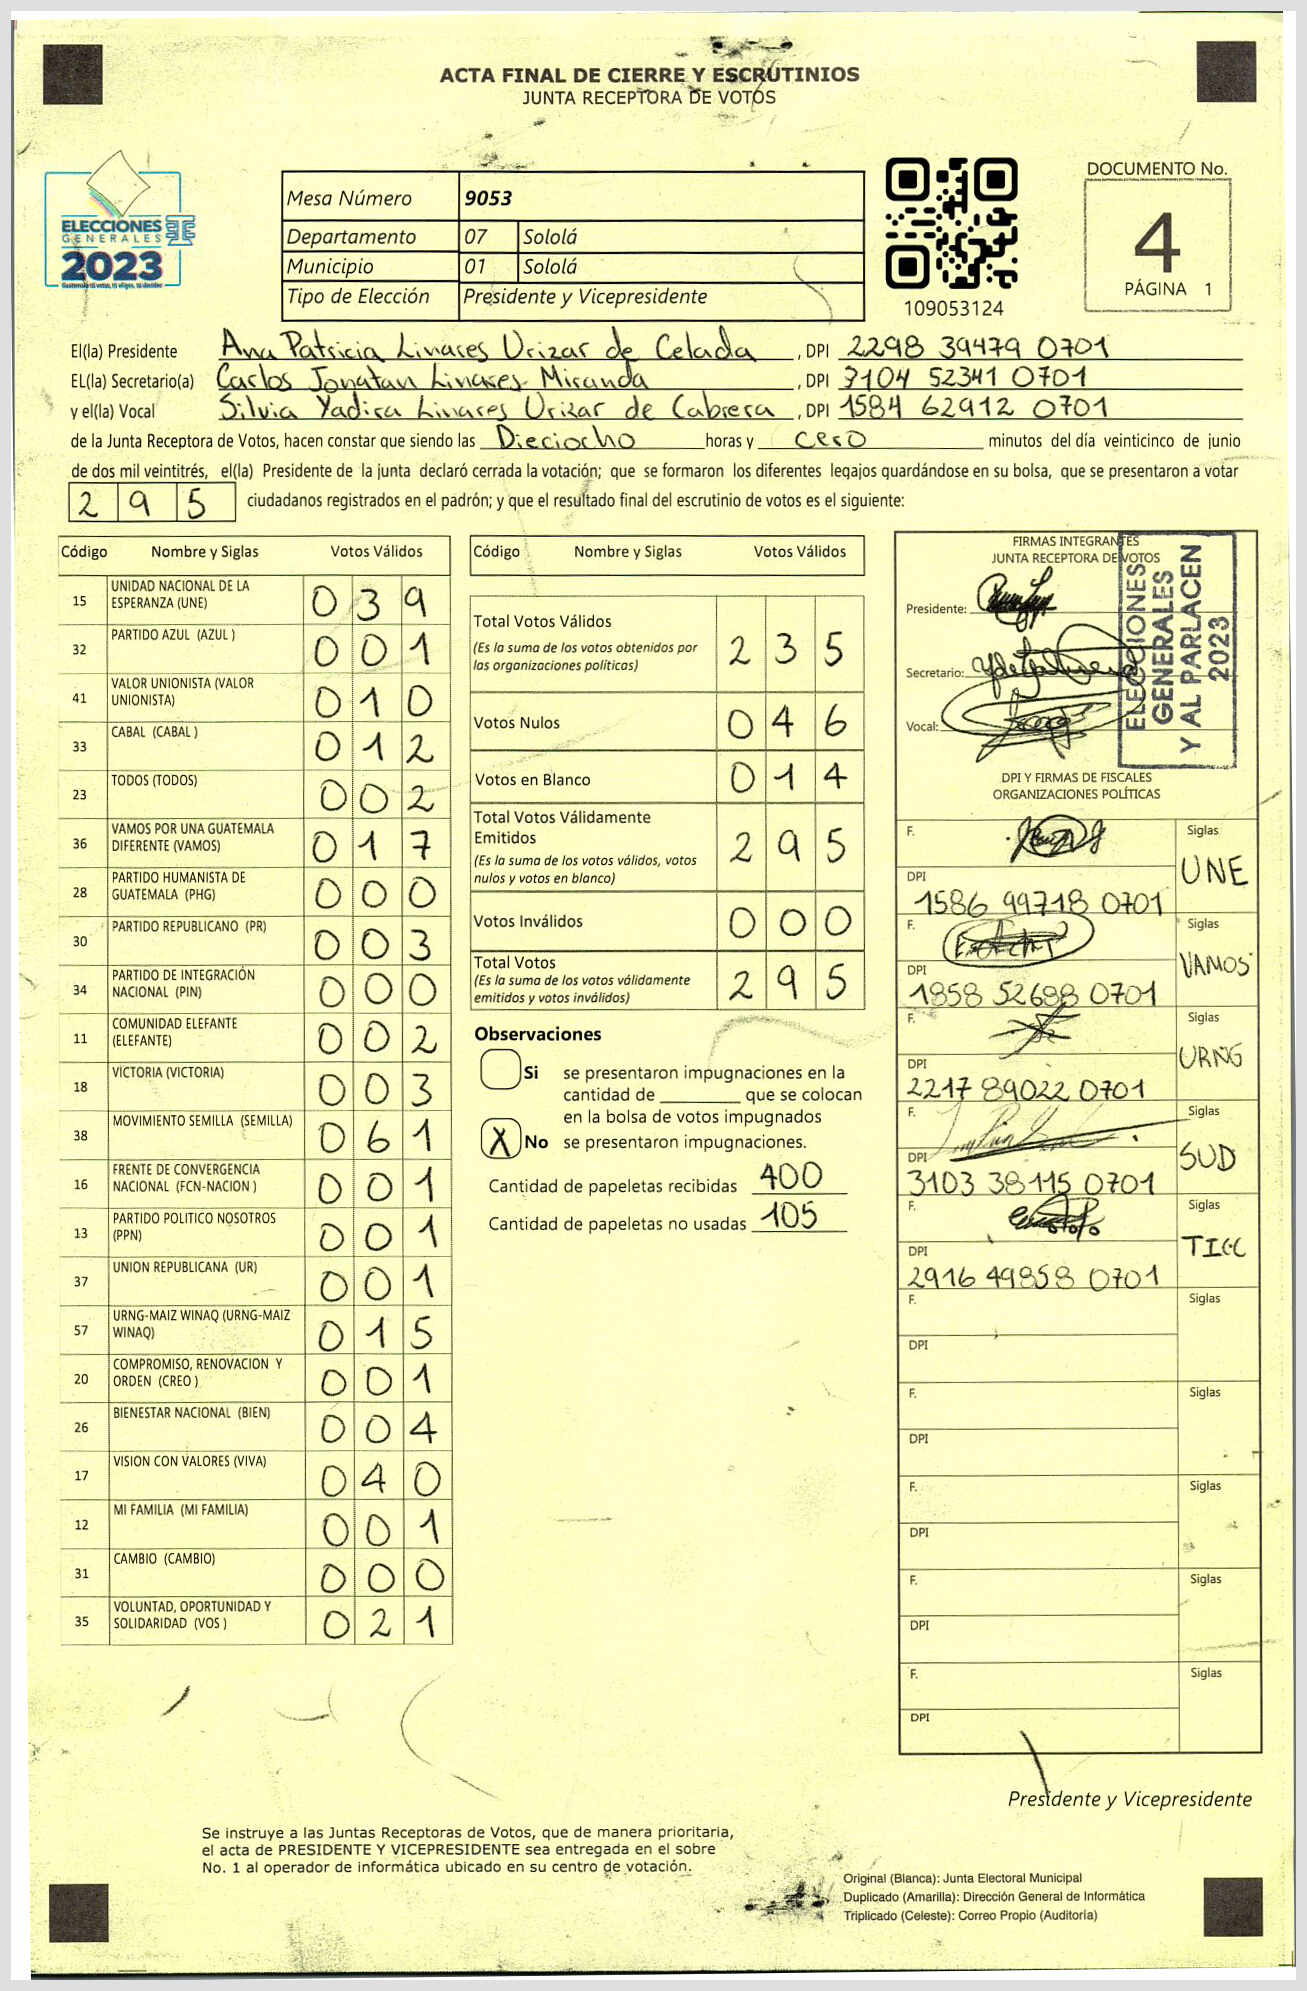 ACTA FINAL DE CIERRE Y ESCRUTINIOS
JUNTA RECEPTORA DE VOTOS
ELECCIONES
GENERALES
2023
Guatemala tú votas, tú eliges, tú decides
Mesa Número 9053
Departamento 07 Sololá
Municipio 01 Sololá
Tipo de Elección Presidente y Vicepresidente
109053124
DOCUMENTO No.
4
PÁGINA 1
El(la) Presidente Ana Patricia Linares Urizar de Celada, DPI 2298 39479 0701
EL(la) Secretario(a) Carlos Jonatan Linares Miranda, DPI 7104 52341 0701
y el(la) Vocal Silvia Yadira Linares Urizar de Cabrera, DPI 1584 62912 0701
de la Junta Receptora de Votos, hacen constar que siendo las Dieciocho horas y cero minutos del día veinticinco de junio
de dos mil veintitrés, el(la) Presidente de la junta declaró cerrada la votación; que se formaron los diferentes legajos guardándose en su bolsa, que se presentaron a votar
295 ciudadanos registrados en el padrón; y que el resultado final del escrutinio de votos es el siguiente:
Código Nombre y Siglas Votos Válidos
15 UNIDAD NACIONAL DE LA ESPERANZA (UNE) 039
32 PARTIDO AZUL (AZUL ) 001
41 VALOR UNIONISTA (VALOR UNIONISTA) 010
33 CABAL (CABAL ) 012
23 TODOS (TODOS) 002
36 VAMOS POR UNA GUATEMALA DIFERENTE (VAMOS) 017
28 PARTIDO HUMANISTA DE GUATEMALA (PHG) 000
30 PARTIDO REPUBLICANO (PR) 003
34 PARTIDO DE INTEGRACIÓN NACIONAL (PIN) 000
11 COMUNIDAD ELEFANTE (ELEFANTE) 002
18 VICTORIA (VICTORIA) 003
38 MOVIMIENTO SEMILLA (SEMILLA) 061
16 FRENTE DE CONVERGENCIA NACIONAL (FCN-NACION ) 001
13 PARTIDO POLITICO NOSOTROS (PPN) 001
37 UNION REPUBLICANA (UR) 001
57 URNG-MAIZ WINAQ (URNG-MAIZ WINAQ) 015
20 COMPROMISO, RENOVACION Y ORDEN (CREO ) 001
26 BIENESTAR NACIONAL (BIEN) 004
17 VISION CON VALORES (VIVA) 040
12 MI FAMILIA (MI FAMILIA) 001
31 CAMBIO (CAMBIO) 000
35 VOLUNTAD, OPORTUNIDAD Y SOLIDARIDAD (VOS ) 021
Código Nombre y Siglas Votos Válidos
Total Votos Válidos 235
(Es la suma de los votos obtenidos por
las organizaciones políticas)
Votos Nulos 046
Votos en Blanco 014
Total Votos Válidamente
Emitidos 295
(Es la suma de los votos válidos, votos
nulos y votos en blanco)
Votos Inválidos 000
Total Votos 295
(Es la suma de los votos válidamente
emitidos y votos inválidos)
Observaciones
Si se presentaron impugnaciones en la
cantidad de ________ que se colocan
en la bolsa de votos impugnados
X No se presentaron impugnaciones.
Cantidad de papeletas recibidas 400
Cantidad de papeletas no usadas 105
FIRMAS INTEGRANTES
JUNTA RECEPTORA DE VOTOS
Presidente:
Secretario:
Vocal:
ELECCIONES
GENERALES
Y AL PARLACEN
2023
DPI Y FIRMAS DE FISCALES
ORGANIZACIONES POLÍTICAS
F. Siglas UNE
DPI 1586 99718 0701
F. Siglas VAMOS
DPI 1858 52688 0701
F. Siglas URNG
DPI 2217 89022 0701
F. Siglas SUD
DPI 3103 38115 0701
F. Siglas
DPI 2916 49858 0701
F. Siglas
DPI
F. Siglas
DPI
F. Siglas
DPI
F. Siglas
DPI
F. Siglas
DPI
Presidente y Vicepresidente
Se instruye a las Juntas Receptoras de Votos, que de manera prioritaria,
el acta de PRESIDENTE Y VICEPRESIDENTE sea entregada en el sobre
No. 1 al operador de informática ubicado en su centro de votación.
Original (Blanca): Junta Electoral Municipal
Duplicado (Amarilla): Dirección General de Informática
Triplicado (Celeste): Correo Propio (Auditoría)